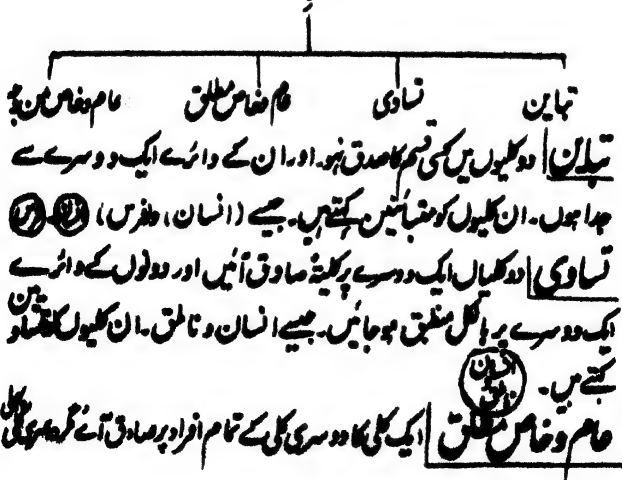 تباین تساوی عام وخاص مطلق عام وخاص من وجہ
تباین دو کلیوں میں کسی قسم کا صدق نہو۔ اور ان کے دائرے ایک دوسرے سے
جدا ہوں۔ ان کلیوں کو متبائنین کہتے ہیں۔ جیسے (انسان، وفرس) انسان فرس
تساوی دو کلیاں ایک دوسرے پر کلیۃً صادق آئیں اور دونوں کے دائرے
ایک دوسرے پر بالکل منطبق ہو جائیں۔ جیسے انسان و ناطق۔ ان کلیوں کو متساویین
کہتے ہیں۔ انسان ناطق
عام وخاص مطلق ایک کلی کا دوسری کلی کے تمام افراد پر صادق آئے مگر دوسری کلی